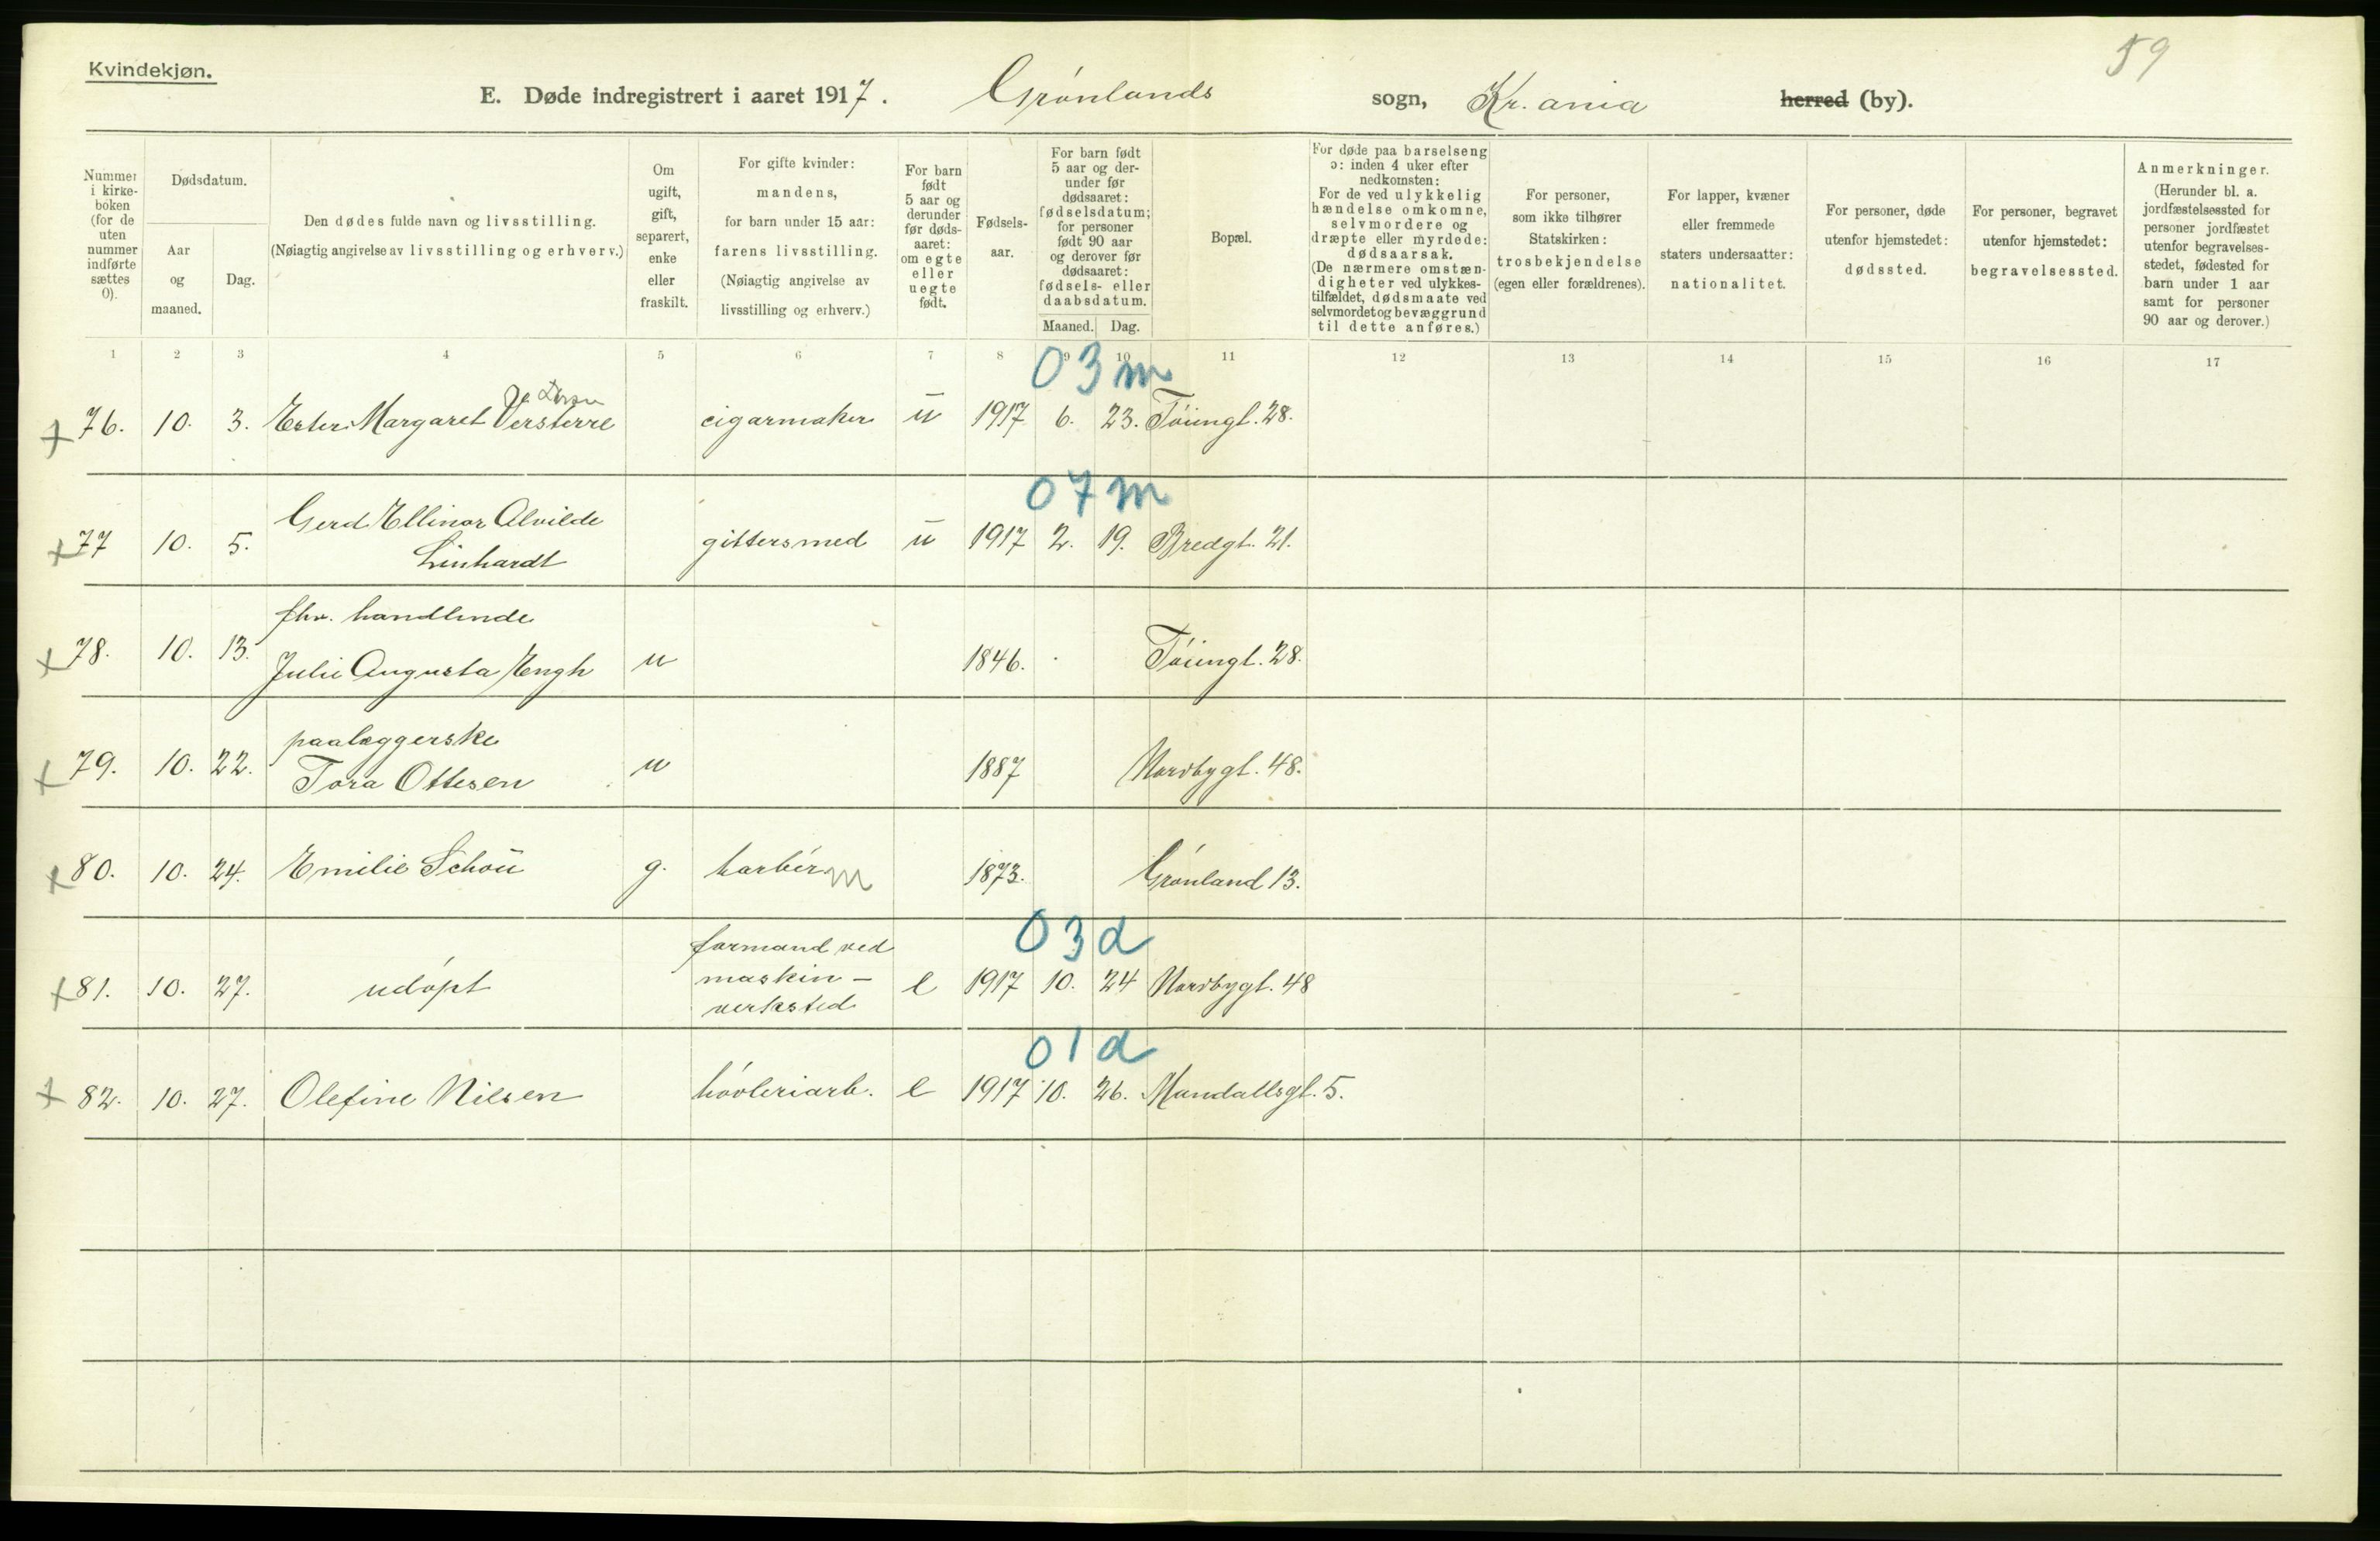 59
Kvindekjøn.
E. Døde indregistrert i aaret 1917. Grønlands sogn, Kr.ania herred (by).
Nummer i kirkeboken (for de uten nummer indførte sættes 0).
Dødsdatum.
Aar og maaned.
Dag.
Den dødes fulde navn og livsstilling.
(Nøiagtig angivelse av livsstilling og erhverv.)
Om ugift, gift, separert, enke eller fraskilt.
For gifte kvinder: mandens, for barn under 15 aar: farens livsstilling. (Nøiagtig angivelse av livsstilling og erhverv.)
For barn født 5 aar og derunder før dødsaaret: om egte eller uegte født.
Fødselsaar.
For barn født 5 aar og derunder før dødsaaret: fødselsdatum; for personer født 90 aar og derover før dødsaaret: fødsels- eller daabsdatum.
Maaned. Dag.
Bopæl.
For døde paa barselseng ɔ: inden 4 uker efter nedkomsten: For de ved ulykkelig hændelse omkomne, selvmordere og dræpte eller myrdede: dødsaarsak. (De nærmere omstændigheter ved ulykkestilfældet, dødsmaate ved selvmordet og bevæggrund til dette anføres.)
For personer, som ikke tilhører Statskirken: trosbekjendelse (egen eller forældrenes).
For lapper, kvæner eller fremmede staters undersaatter: nationalitet.
For personer, døde utenfor hjemstedet: dødssted.
For personer, begravet utenfor hjemstedet: begravelsessted.
Anmerkninger. (Herunder bl. a. jordfæstelsessted for personer jordfæstet utenfor begravelsesstedet, fødested for barn under 1 aar samt for personer 90 aar og derover.)
1 2 3 4 5 6 7 8 9 10 11 12 13 14 15 16 17
03m
76. 10. 3. Ester Margaret Versterre cigarmaker u 1917 6. 23. Tøiengt. 28.
07m
77 10. 5. Gerd Ellinor Alvilde Linhardt gittersmed u 1917 2. 19. Bredgt. 21.
fhv. handlende
78. 10. 13. Julie Augusta Engh u 1846. Tøiengt. 28.
paalæggerske
79. 10. 22. Tora Ottesen u 1887 Nordbygt. 48.
80. 10. 24. Emilie Schou g. barbér m 1873. Grønland 13.
03d
81. 10. 27. udøpt formand ved maskin-verksted e 1917 10. 24 Nordbygt. 48
01d
82. 10. 27. Olefine Nilsen høvleriarb. e 1917 10. 26. Mandallsgt. 5.